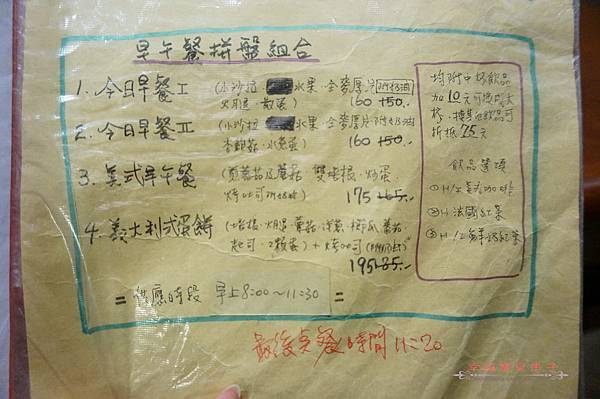 早午餐拼盤組合
1. 今日早餐I (小沙拉 水果 全麥厚片附奶油
火腿 散蛋) 160 150.-
2. 今日早餐II (小沙拉 水果 全麥厚片附奶油
杏鮑菇·水煮蛋) 160 150.-
3. 美式早午餐 (蕃茄及蘑菇 雙培根·炒蛋
烤吐司附奶油) 175 165.-
4. 義大利式蛋餅 (培根·火腿·蘑菇 洋蔥 櫛瓜 蕃茄
起司·2顆蛋) + 烤吐司
195 185.-
= 供應時段 早上8:00~11:30 =
最後點餐時間 11:20
均附中杯飲品
加10元可換成大
杯·換其他飲品可
折抵25元
飲品選項
① H/I 美式咖啡
② H 法國紅茶
③ H/I 鮮奶紅茶